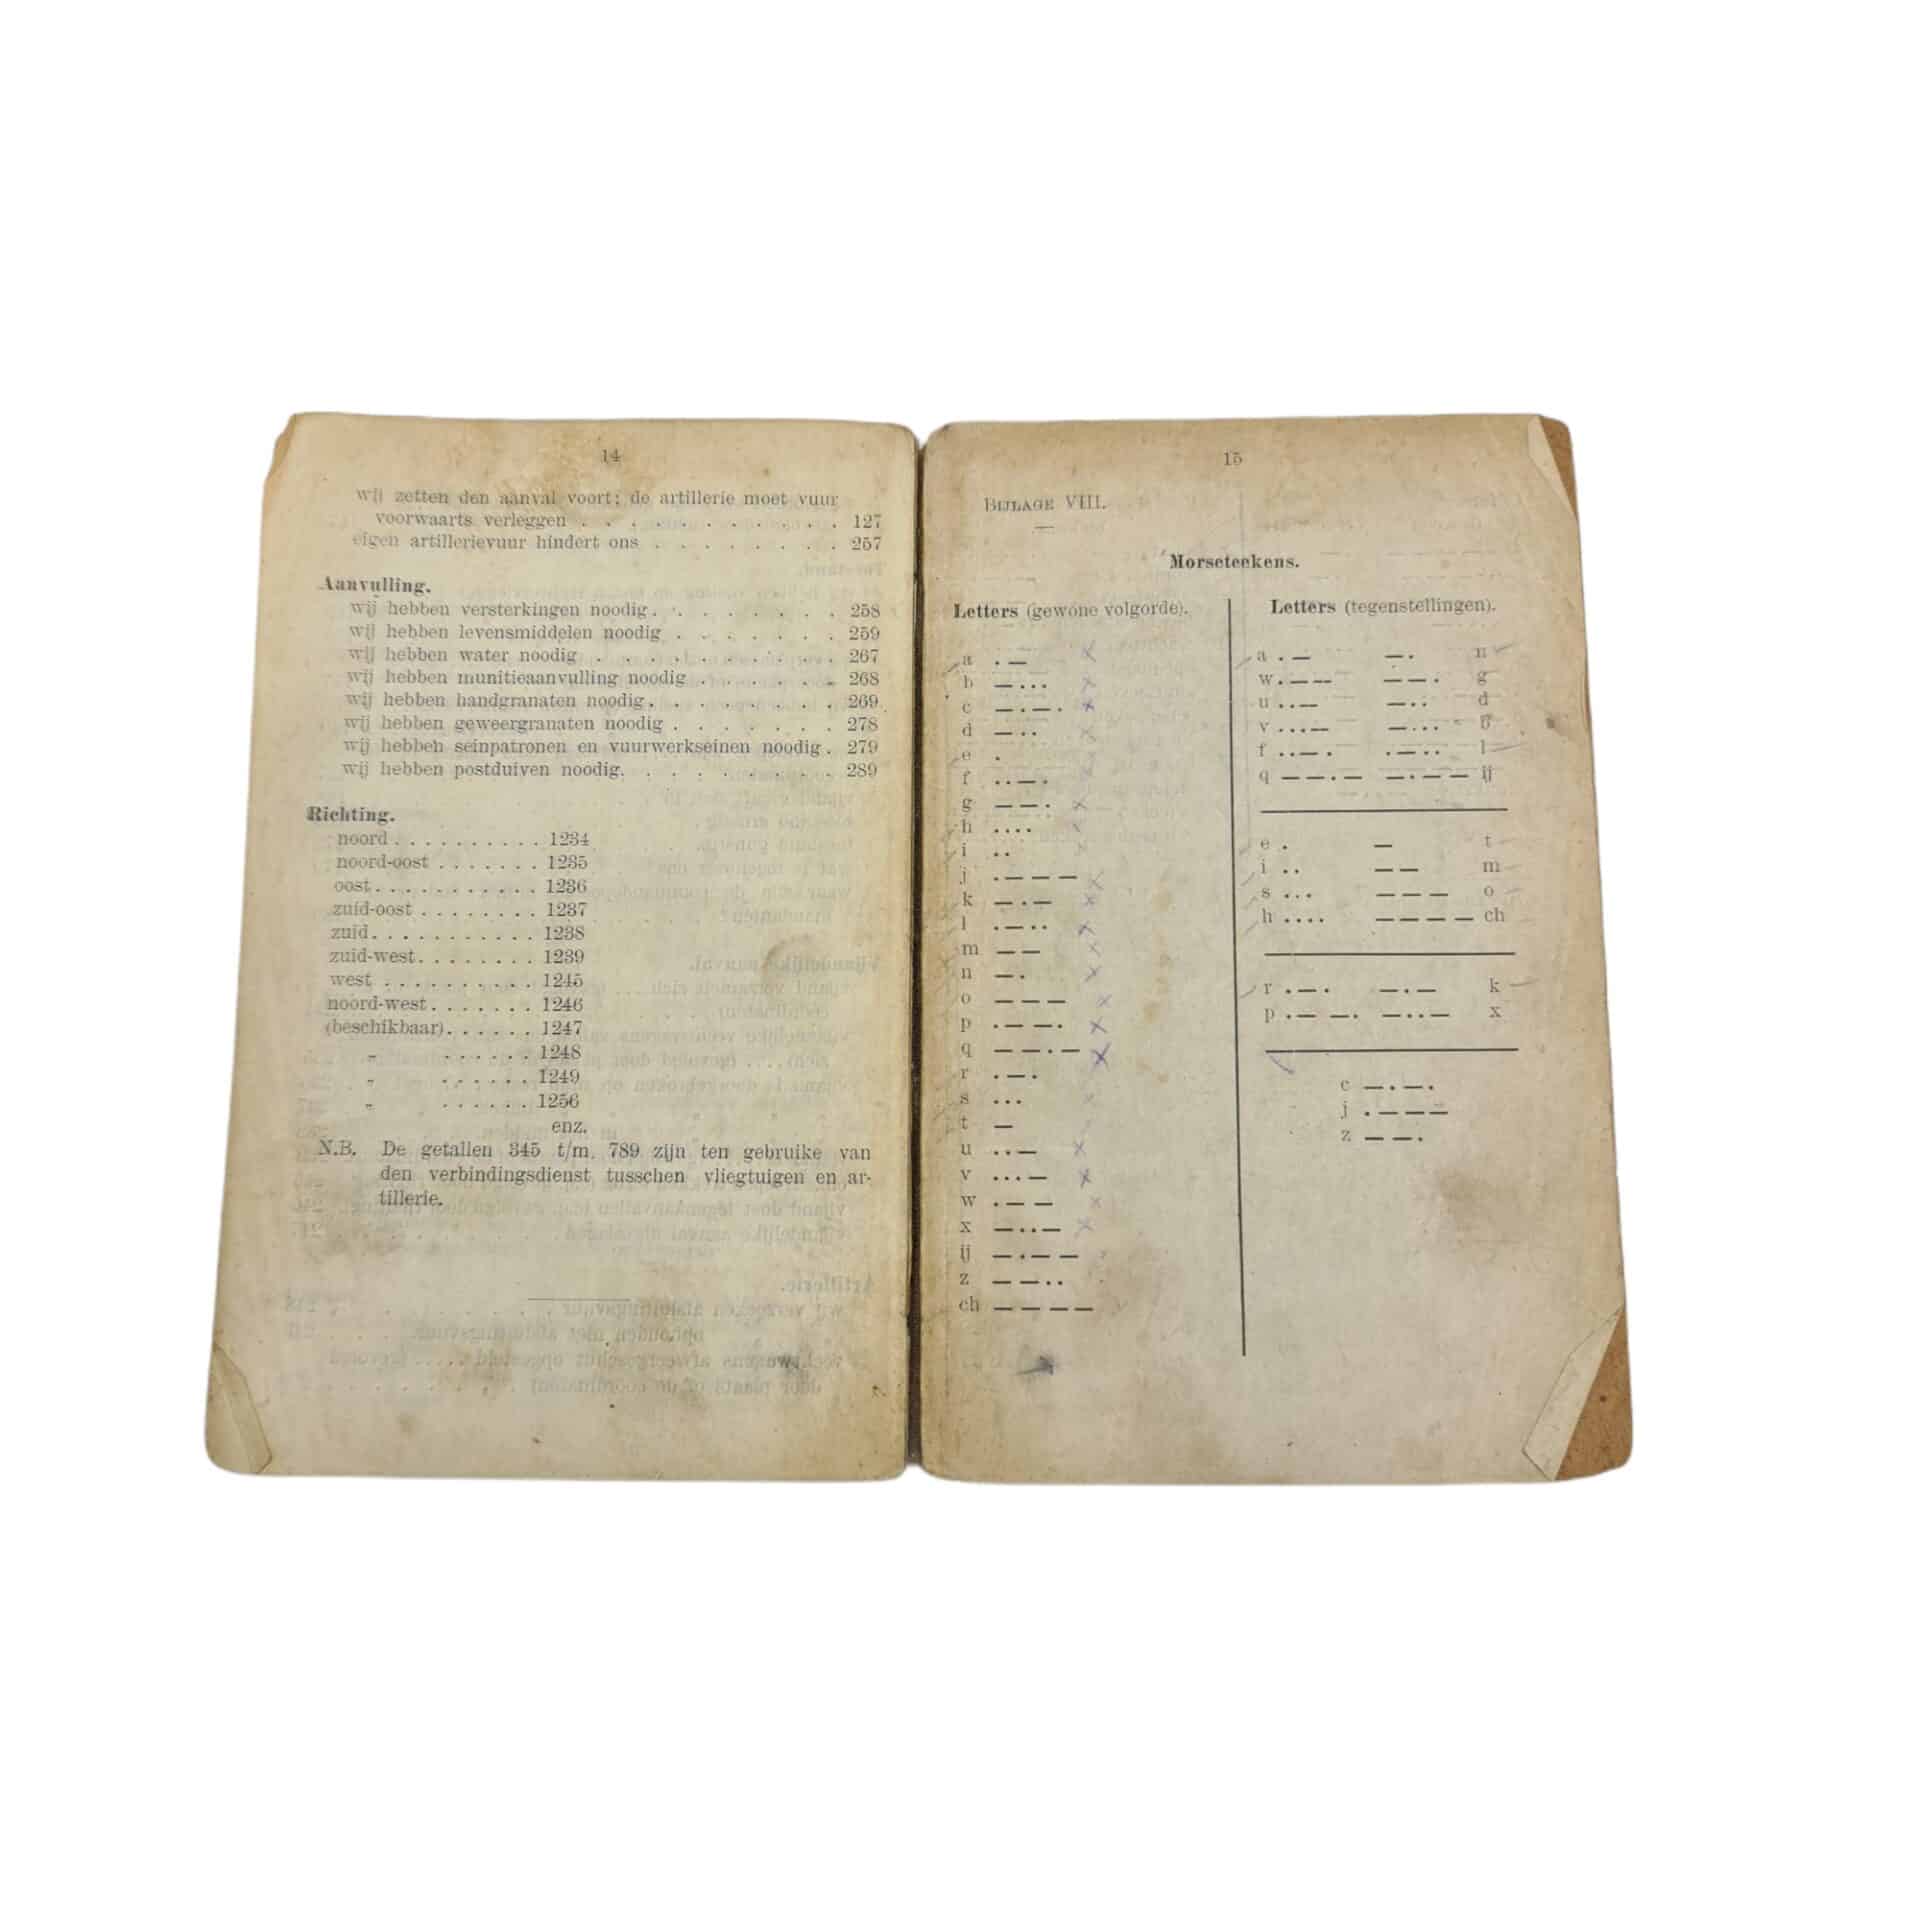 14
wij zetten den aanval voort; de artillerie moet vuur
voorwaarts verleggen . . . . . . . . . . . 127
eigen artillerievuur hindert ons . . . . . . . . 257
Aanvulling.
wij hebben versterkingen noodig . . . . . . . . 258
wij hebben levensmiddelen noodig . . . . . . . 259
wij hebben water noodig . . . . . . . . . . 267
wij hebben munitieaanvulling noodig . . . . . . 268
wij hebben handgranaten noodig . . . . . . . . 269
wij hebben geweergranaten noodig . . . . . . . 278
wij hebben seinpatronen en vuurwerkseinen noodig . 279
wij hebben postduiven noodig. . . . . . . . . 289
Richting.
noord . . . . . . . . . . 1234
noord-oost . . . . . . . 1235
oost . . . . . . . . . . . 1236
zuid-oost . . . . . . . . 1237
zuid . . . . . . . . . . . 1238
zuid-west . . . . . . . . 1239
west . . . . . . . . . . 1245
noord-west . . . . . . . 1246
(beschikbaar) . . . . . . 1247
„ . . . . . . 1248
„ . . . . . . 1249
„ . . . . . . 1256
enz.
N.B. De getallen 345 t/m. 789 zijn ten gebruike van
den verbindingsdienst tusschen vliegtuigen en ar-
tillerie.
15
BIJLAGE VIII.
Morseteekens.
Letters (gewone volgorde).
a . —
b — . . .
c — . — .
d — . .
e .
f . . — .
g — — .
h . . . .
i . .
j . — — —
k — . —
l . — . .
m — —
n — .
o — — —
p . — — .
q — — . —
r . — .
s . . .
t —
u . . —
v . . . —
w . — —
x — . . —
ij — . — —
z — — . .
ch — — — —
Letters (tegenstellingen).
a . — — . n
w . — — — — . g
u . . — — . . d
v . . . — — . . . b
f . . — . . — . . l
q — — . — — . — — ij
e . — t
i . . — — m
s . . . — — — o
h . . . . — — — — ch
r . — . — . — k
p . — — . — . . — x
c — . — .
j . — — —
z — — .